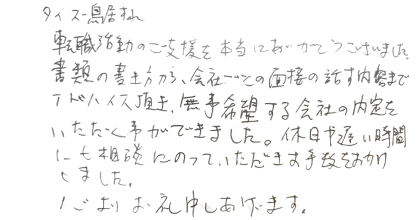 転職活動のご支援を本当にありがとうございました。
書類の書き方から、会社ごとの面接の話す内容まで
アドバイス頂き、無事希望する会社の内定を
いただく事ができました。休日や遅い時間
にも相談にのっていただきお手数をおかけ
しました。
お礼申しあげます。